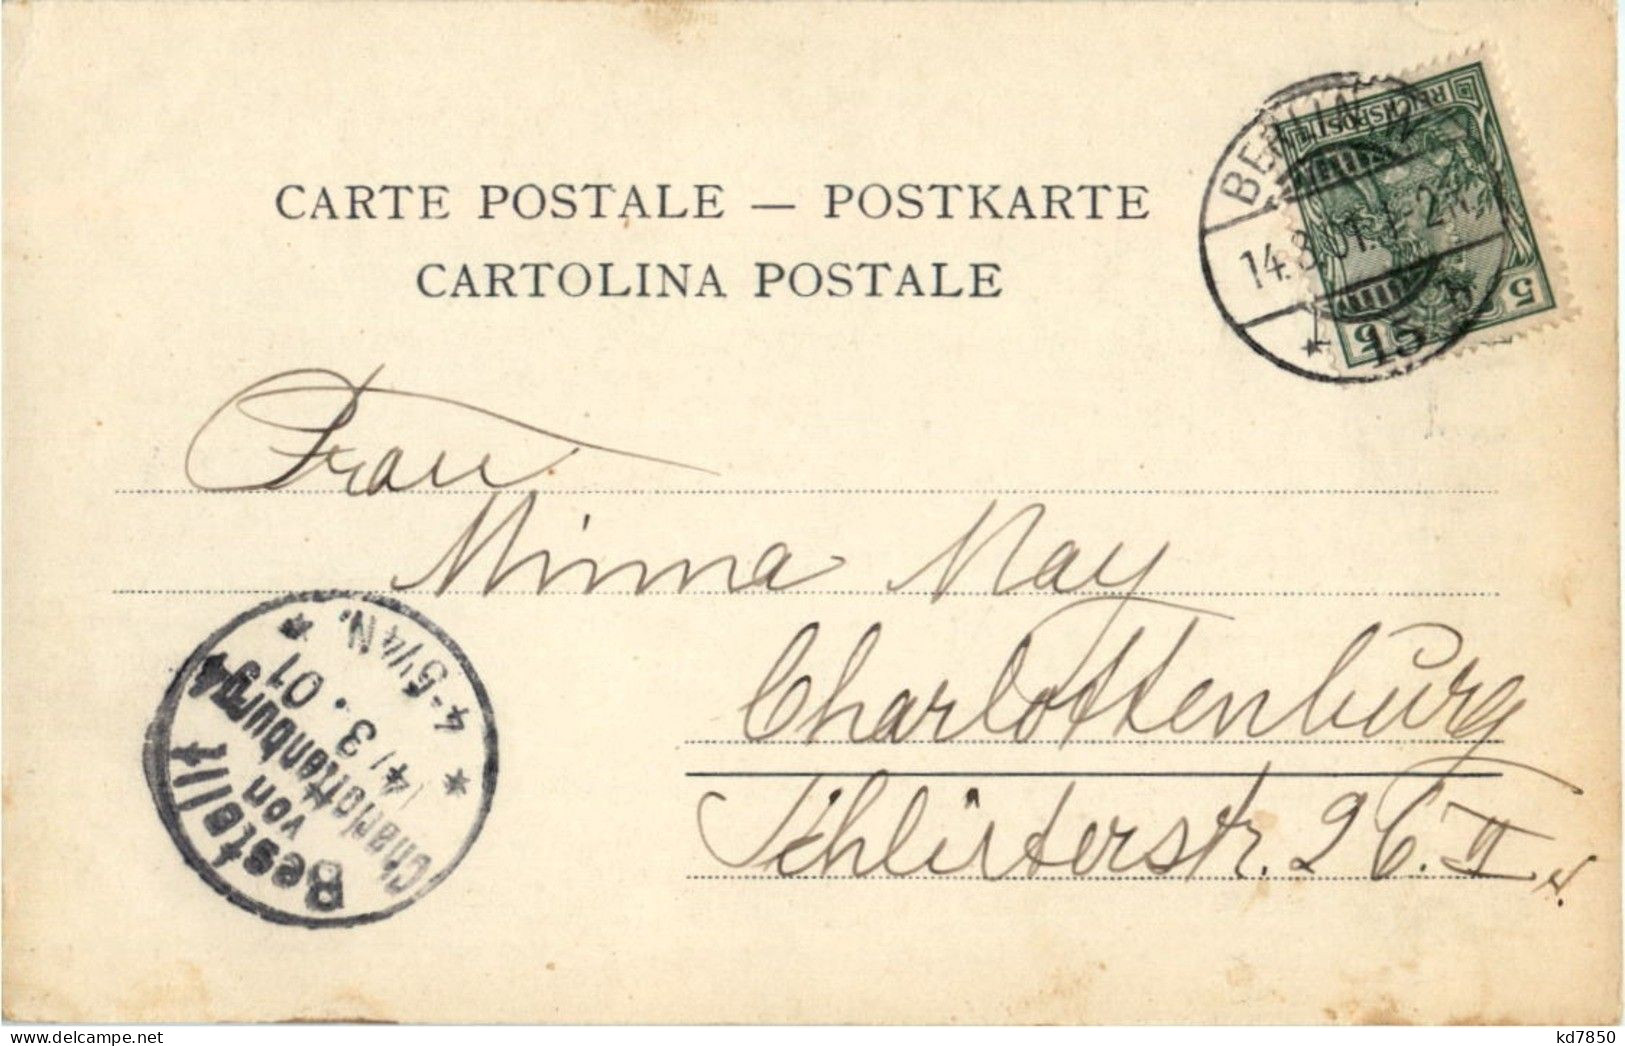 CARTE POSTALE — POSTKARTE
CARTOLINA POSTALE
REICHSPOST
5
5
BERLIN W
14.3.01. 1-2N.
* 15 b
Frau
Minna May
Charlottenburg
Schlüterstr. 26. II
Bestellt
von
Charlottenburg 4
14/3.01
4-5¼N.
delcampe.net
kd7850